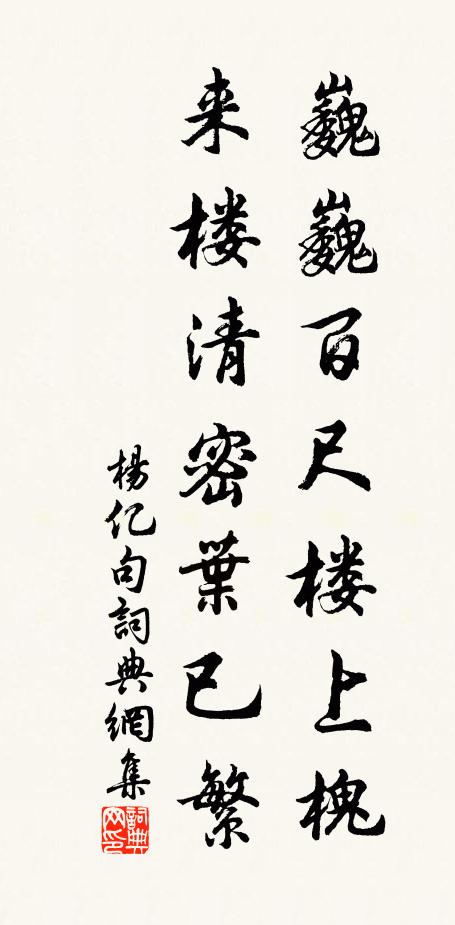 巍巍百尺楼上槐
来楼清密葉已繁
楊亿句詞典網集
詞典网印